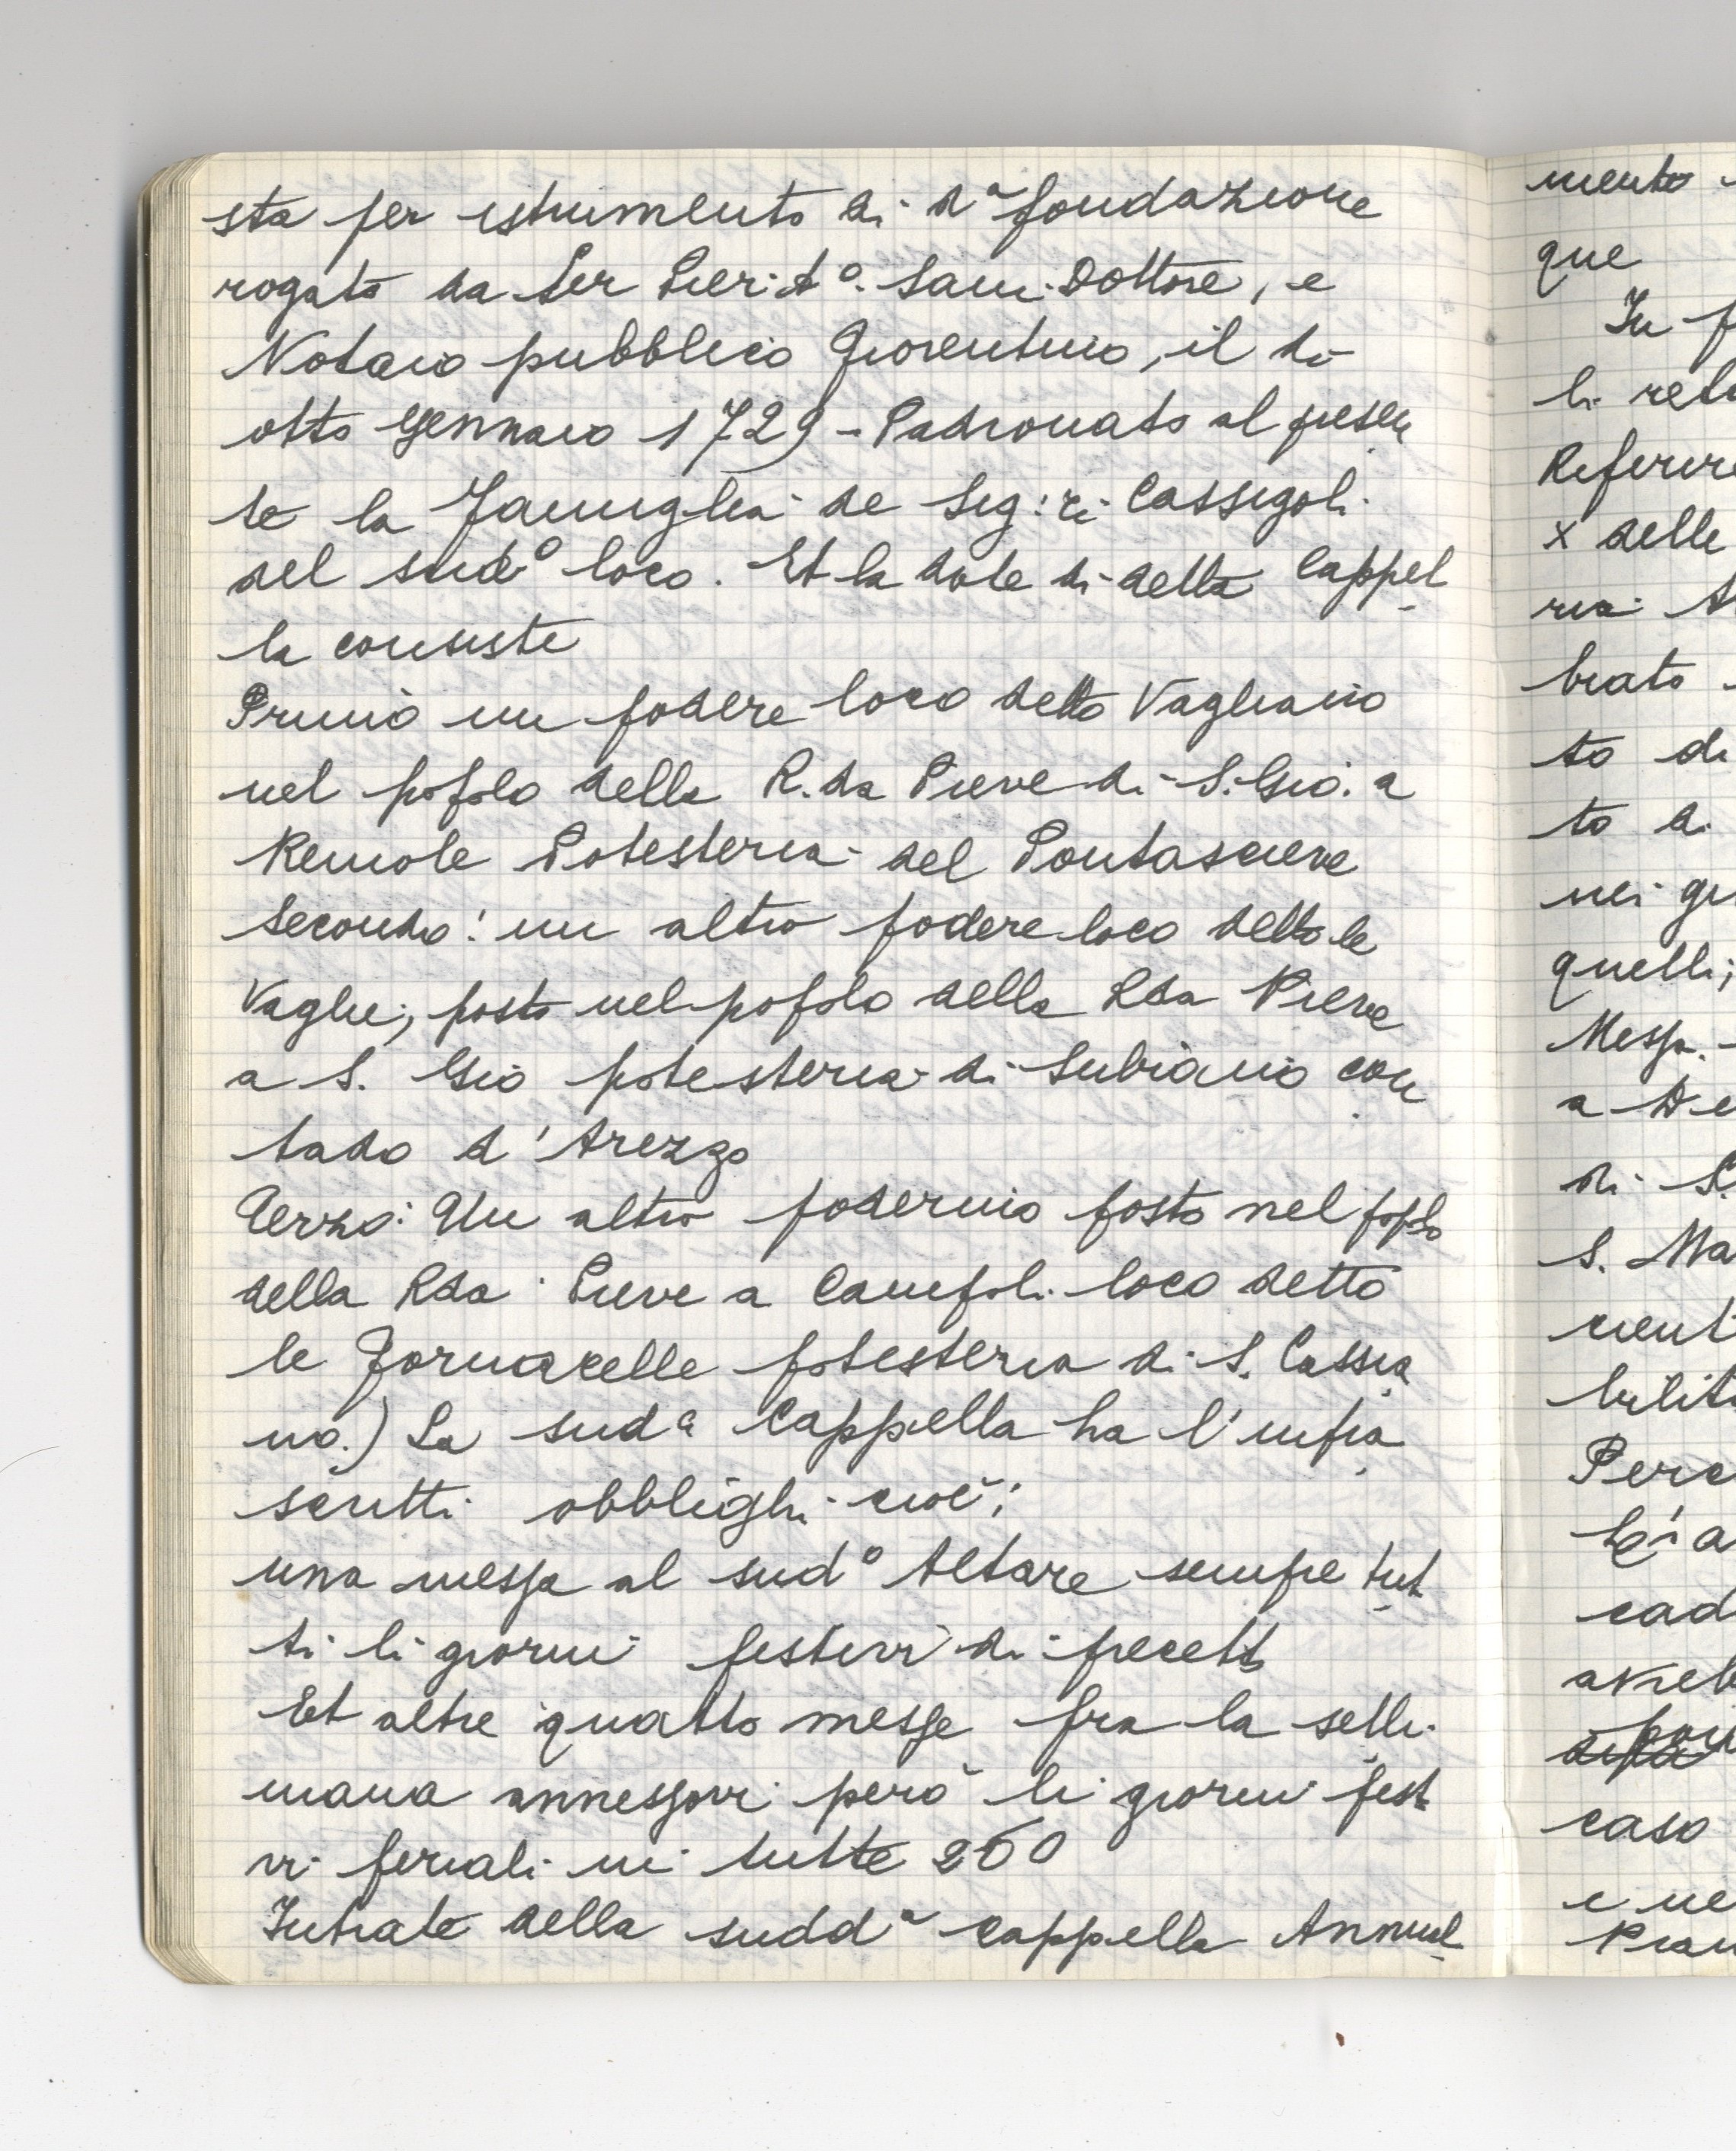 sta per istrumento di d.ª fondazione
rogato da Ser Pier: A.º Sani Dottore, e
Notaio pubblico Fiorentino, il di
otto Gennaio 1729 - Padronato al presen
te la Famiglia de Sig:ri Cassigoli
del sud.º loco. Et la dote di detta Cappel
la consiste
Primo un podere loco detto Vagliano
nel popolo della R.da Pieve di S. Gio. a
Remole Potesteria del Pontasieve
Secondo: un altro podere loco detto le
Vaglie, posto nel popolo della Rda Pieve
a S. Gio potesteria di Subiano con
tado d'Arezzo
Terzo: Un altro poderino posto nel popolo
della Rda Pieve a Campoli loco detto
le Fornacelle potesteria di S. Cassia
no.) La sudª Cappella ha l'infra
scritti obblighi cioè;
una messa al sudº Altare sempre tut
ti li giorni festivi di precetto
Et altre quatto messe fra la setti
mana annessovi però li giorni festi
vi feriali in tutte 260
Intrate della suddª cappella Annual
mento
que
In
li
x delle
brato
to di
to di
nei
quelli;
a
di S.
S. Ma
caso